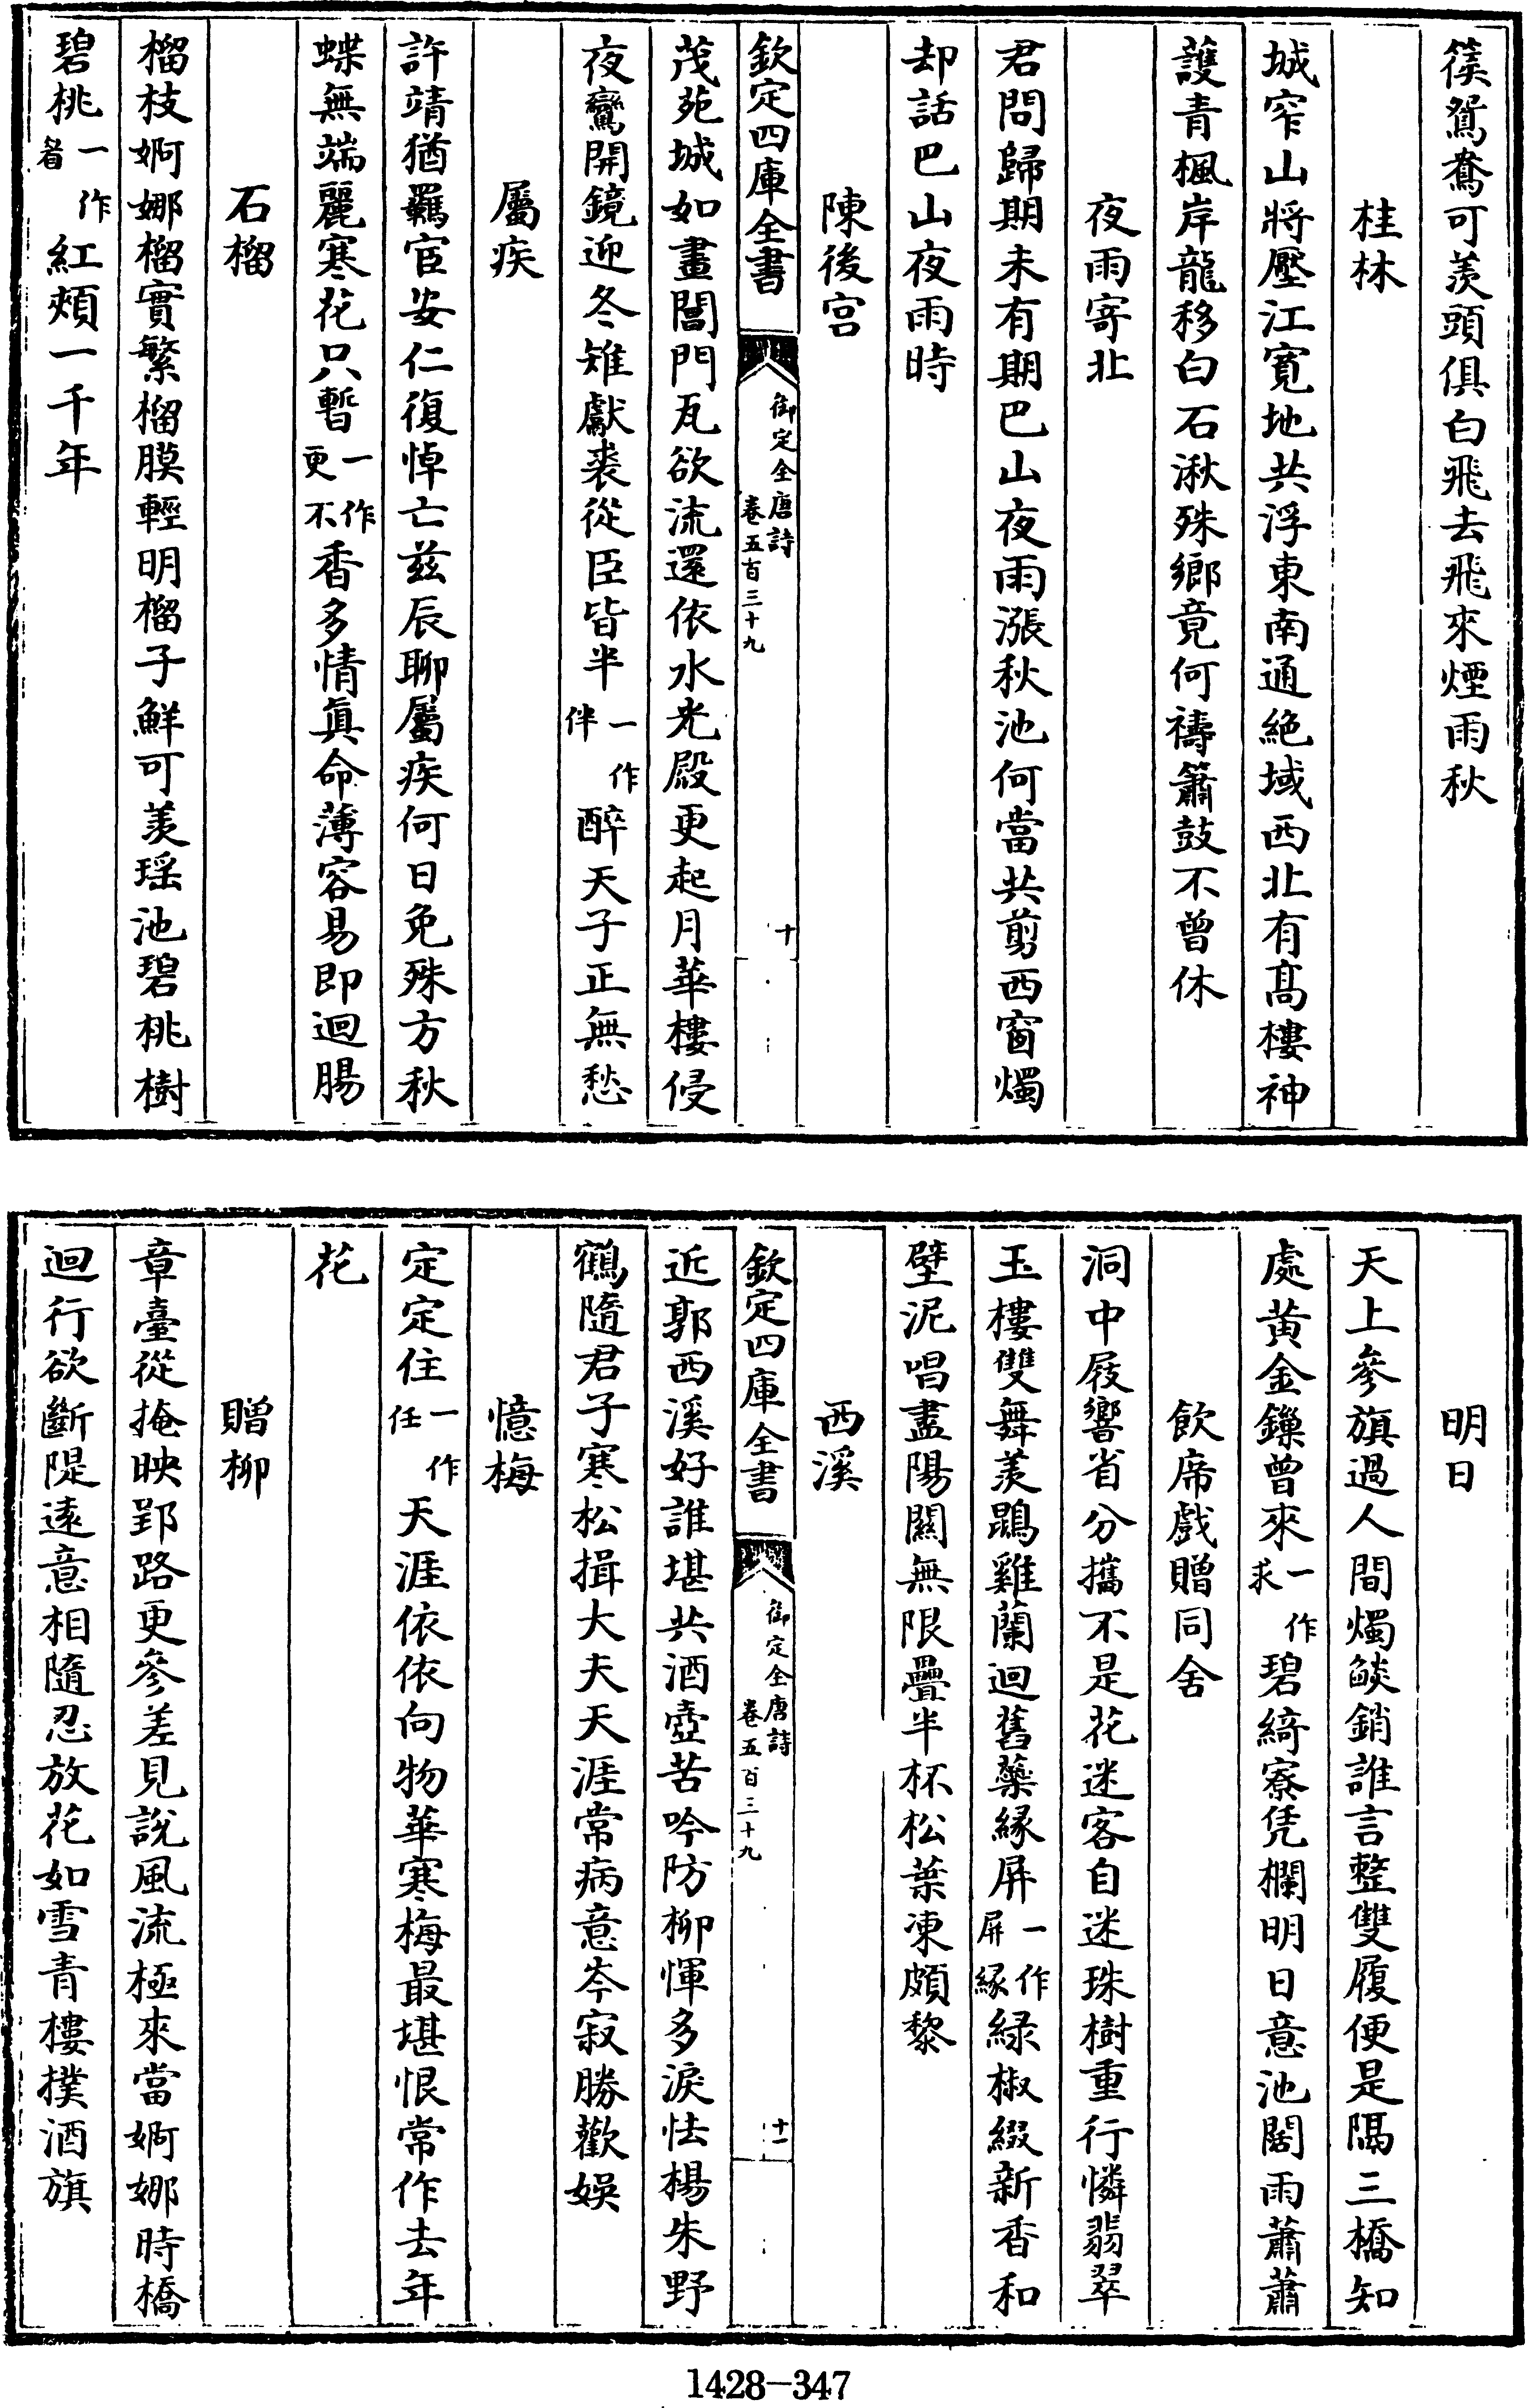 篌鴛鴦可羡頭俱白飛去飛來煙雨秋
桂林
城窄山將壓江寛地共浮東南通絶域西北有髙樓神
䕶青楓岸龍移白石湫殊鄉竟何禱簫鼓不曾休
夜雨寄北
君問歸期未有期巴山夜雨漲秋池何當共剪西窗燭
却話巴山夜雨時
陳後宫
欽定四庫全書
御定全唐詩
卷五百三十九
十
茂苑城如畫閶門瓦欲流還依水光殿更起月華樓侵
夜鸞開鏡迎冬雉獻裘從臣皆半一作伴醉天子正無愁
屬疾
許靖猶羈宦安仁復悼亡兹辰聊屬疾何日免殊方秋
蝶無端麗寒花只暫一作更不香多情真命薄容易即迴腸
石榴
榴枝婀娜榴實繁榴膜輕明榴子鮮可羡瑶池碧桃樹
碧桃一作者紅頰一千年
明日
天上參旗過人間燭燄銷誰言整雙履便是隔三橋知
處黃金鏁曾來一作求碧綺寮凭欄明日意池闊雨蕭蕭
飲席戲贈同舍
洞中屐響省分攜不是花迷客自迷珠樹重行憐翡翠
玉樓雙舞羡鵾雞蘭迴舊蘂緣屏一作屏緣緑椒綴新香和
壁泥唱盡陽關無限疊半杯松葉凍頗黎
西溪
欽定四庫全書
御定全唐詩
卷五百三十九
十一
近郭西溪好誰堪共酒壺苦吟防柳惲多淚怯楊朱野
鶴隨君子寒松揖大夫天涯常病意岑寂勝歡娛
憶梅
定定住一作任天涯依依向物華寒梅最堪恨常作去年
花
贈柳
章臺從掩映郢路更參差見說風流極來當婀娜時橋
迴行欲斷隄遠意相隨忍放花如雪青樓撲酒旗
1428-347